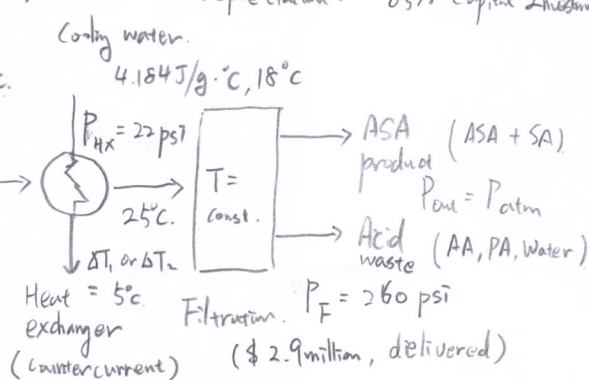 85% Capital
Cooling water.
4.184 J/g·°C, 18°C
c.
P_HX = 22 psi
ASA product (ASA + SA)
P_out = P_atm
T = const.
25°C.
Acid waste (AA, PA, Water)
ΔT₁ or ΔT₂ = 5°C
Heat exchanger (countercurrent)
Filtration. P_F = 260 psi
($ 2.9 million, delivered)